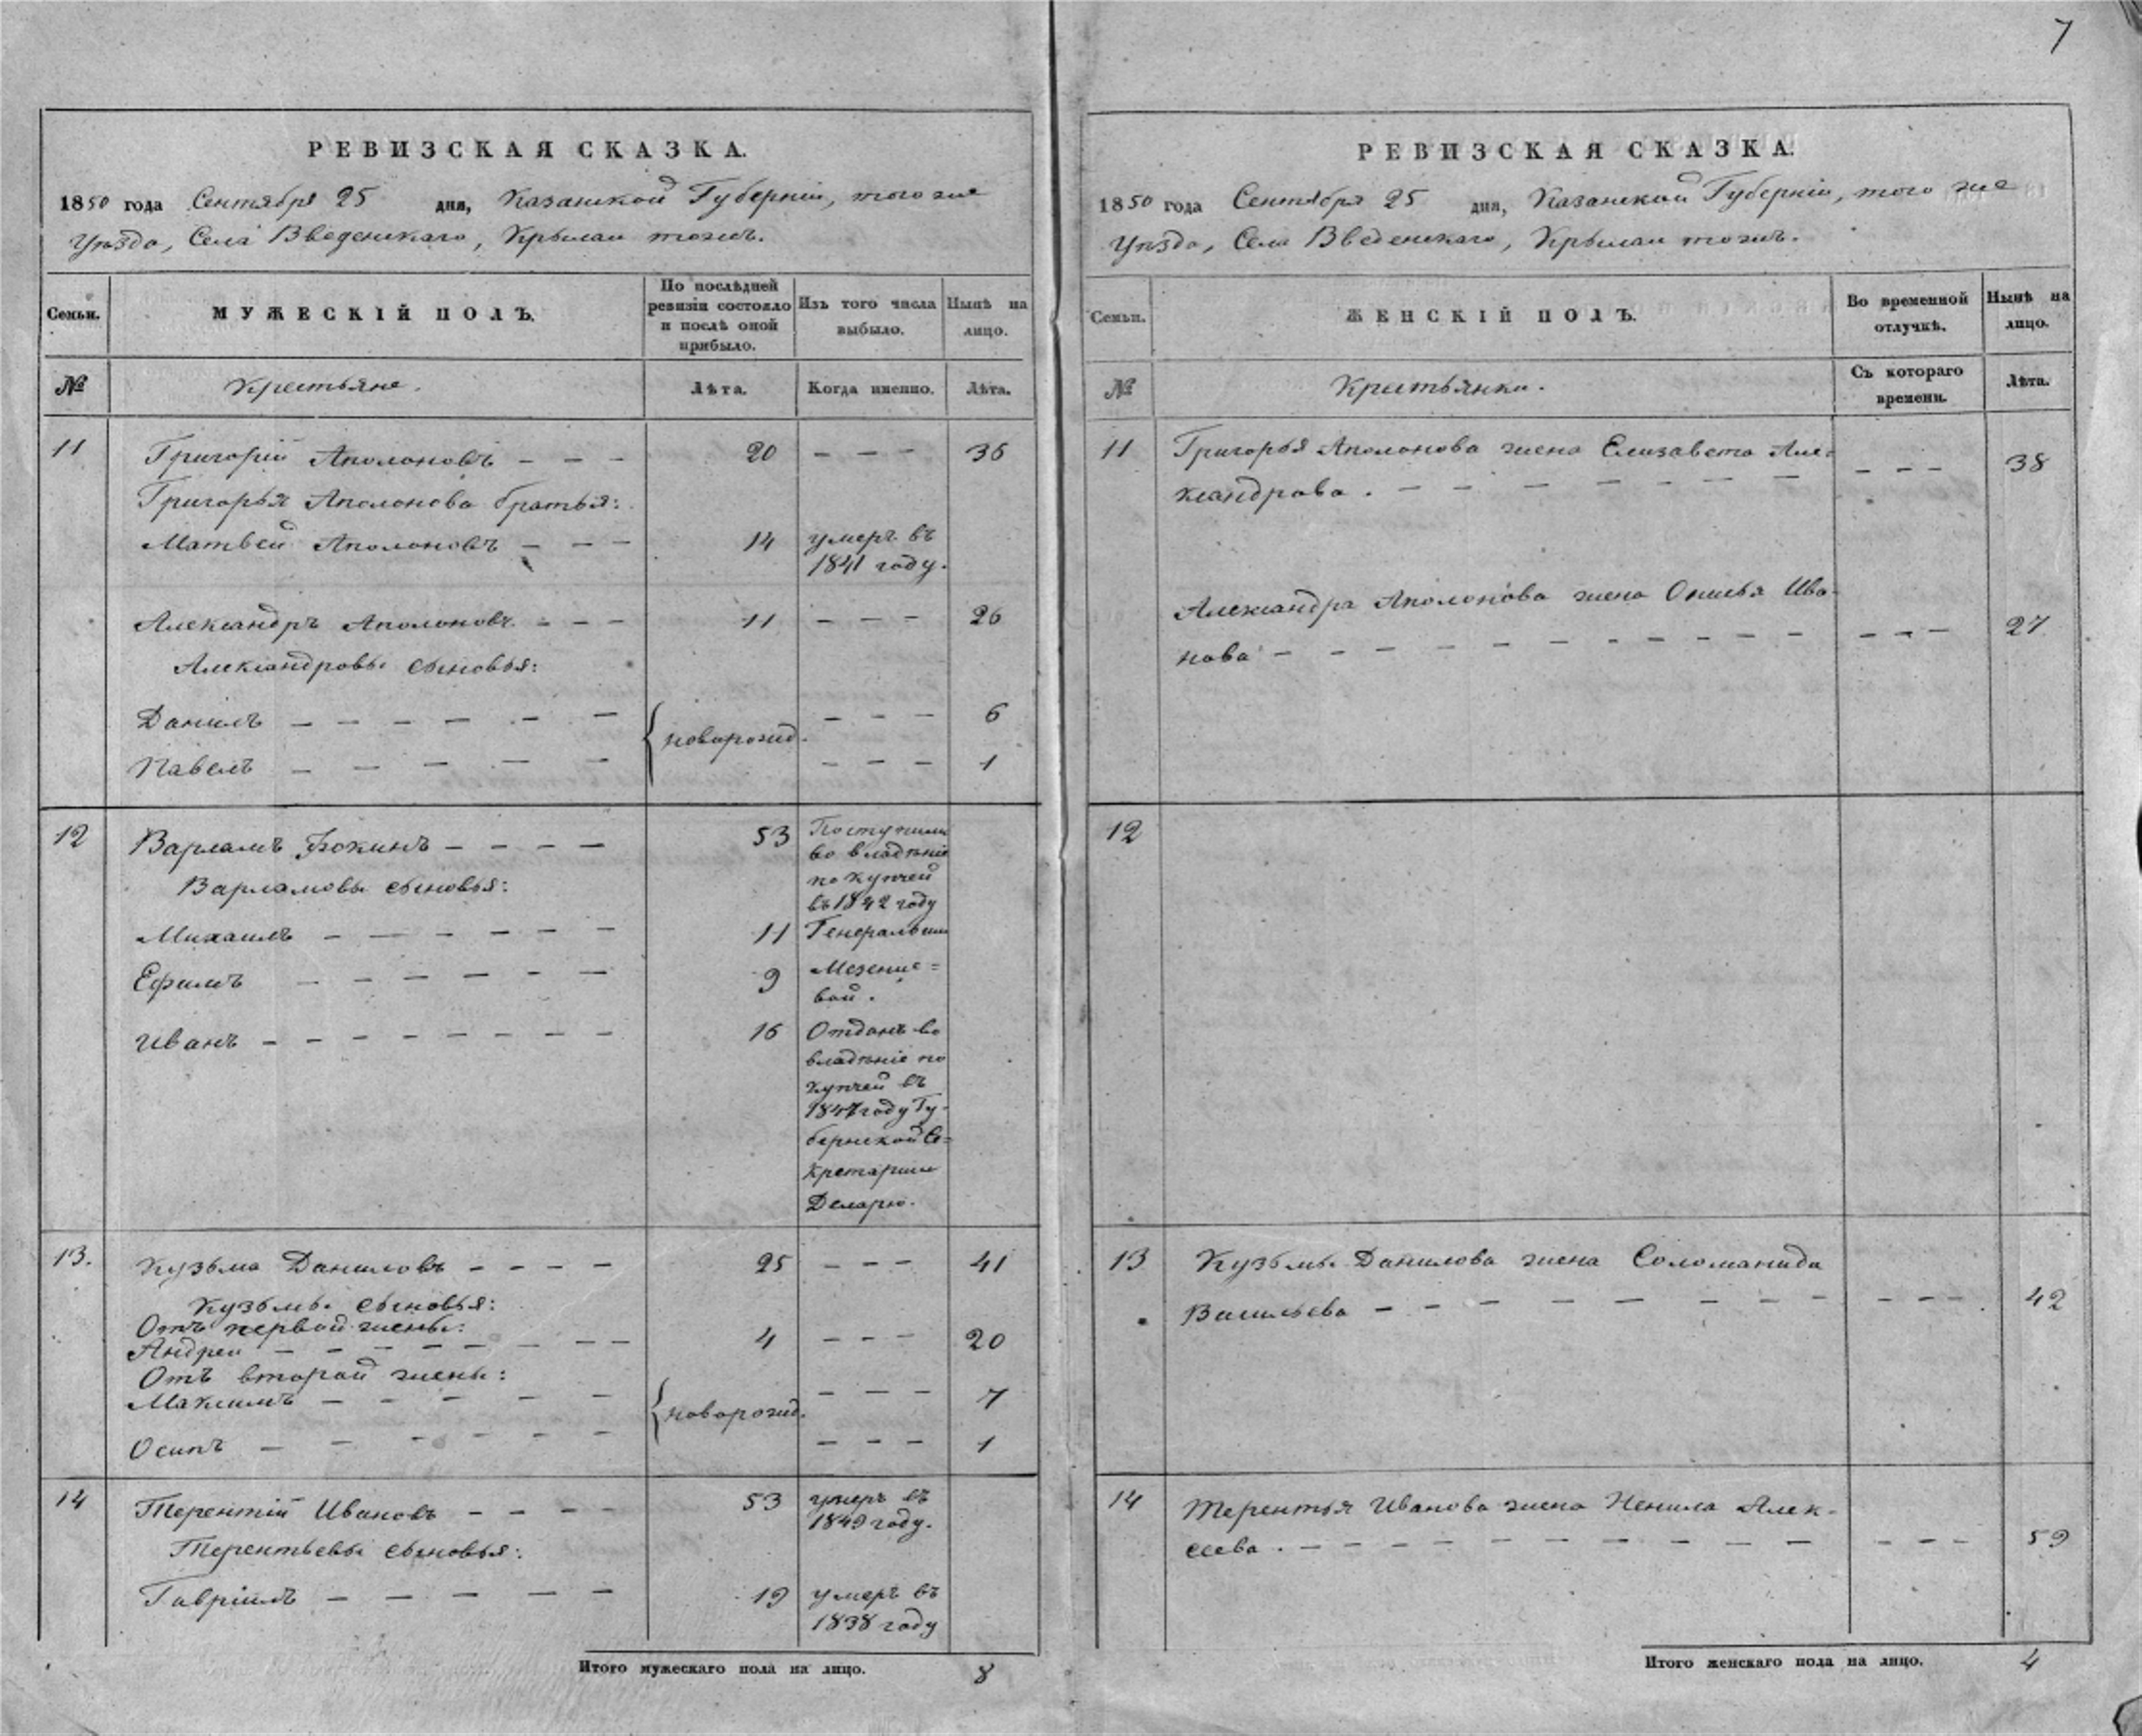 7
РЕВИЗСКАЯ СКАЗКА.
1850 года Сентября 25 дня, Казанской Губернiи, того же
Уѣзда, Села Введенскаго, Крылаи тожъ.
Семьи.
МУЖЕСКІЙ ПОЛЪ.
По послѣдней
ревизіи состояло
и послѣ оной
прибыло.
Изъ того числа
выбыло.
Нынѣ на
лицо.
№
Крестьяне.
Лѣта.
Когда именно.
Лѣта.
11 Григорій Аполоновъ - - - 20 - - - 36
Григорья Аполонова братья:
Матвей Аполоновъ - - - 14 умеръ въ
1841 году.
Александръ Аполоновъ - - - 11 - - - 26
Александровы сыновья:
Данилъ - - - - - - новорожд. - - - 6
Павелъ - - - - - - - - - 1
12 Варламъ Фокинъ - - - - 53 Поступили
во владѣніе
по купчей
въ 1842 году
Варламовы сыновья:
Михаилъ - - - - - - 11 Генеральши
Ефимъ - - - - - - 9 Мезенце=
вой.
Иванъ - - - - - - - - 16 Отданъ во
владѣніе по
купчей въ
1847 году Гу-
бернской Се=
кретарше
Деларю.
13. Кузьма Даниловъ - - - - 25 - - - 41
Кузьмы сыновья:
Отъ первой жены:
Андрей - - - - - - - - 4 - - - 20
Отъ второй жены:
Максимъ - - - - - новорожд. - - - 7
Осипъ - - - - - - - - - 1
14 Терентій Ивановъ - - - - 53 умеръ въ
1849 году.
Терентьевы сыновья:
Гавріилъ - - - - - 19 умеръ въ
1838 году
Итого мужескаго пола на лицо. 8
РЕВИЗСКАЯ СКАЗКА.
1850 года Сентября 25 дня, Казанской Губерніи, того же
Уѣзда, Села Введенскаго, Крылаи тожъ.
Семьи.
ЖЕНСКІЙ ПОЛЪ.
Во временной
отлучкѣ.
Нынѣ на
лицо.
№
Крестьянки.
Съ котораго
времени.
Лѣта.
11 Григорья Аполонова жена Елизавета Але=
ксандрова. - - - - - - - - - - 38
Александра Аполонова жена Онисья Ива-
нова - - - - - - - - - - - - - 27
12
13 Кузьмы Данилова жена Соломанида
Васильева - - - - - - - - - - - - 42
14 Терентья Иванова жена Ненила Алек-
сеева. - - - - - - - - - - - - - 59
Итого женскаго пола на лицо. 4